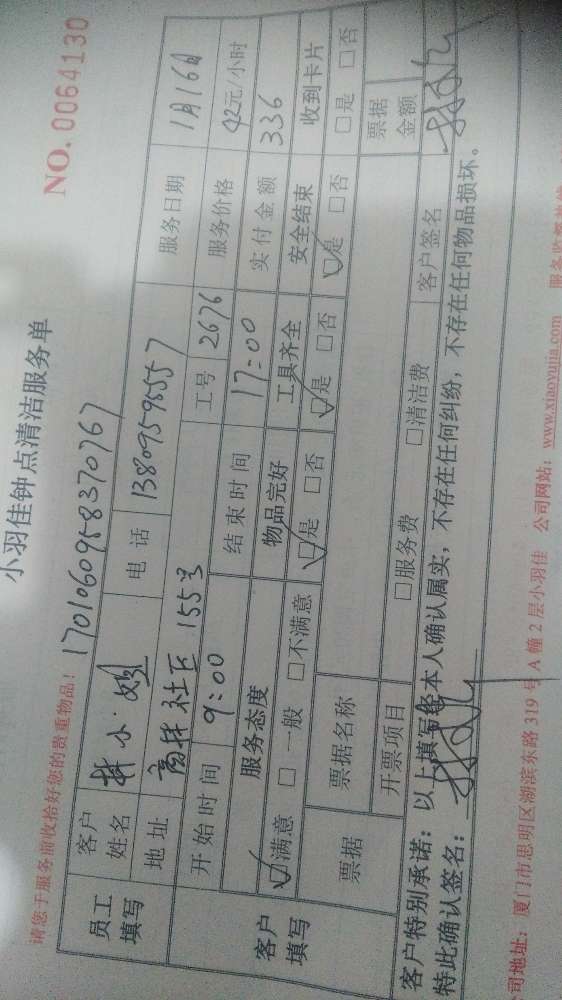 小羽佳钟点清洁服务单
NO. 0064130
请您于服务前收拾好您的贵重物品！ 1701060958370767
员工填写 客户姓名 林小姐 电话 13809598557 服务日期 1月16日
地址 高林社区 155号 工号 2676 服务价格 42元/小时
开始时间 9:00 结束时间 17:00 实付金额 336
客户填写 服务态度 物品完好 工具齐全 安全结束 收到卡片
☑满意 □一般 □不满意 ☑是 □否 ☑是 □否 ☑是 □否 □是 □否
票据 票据名称 票据金额
开票项目 □服务费 □清洁费 客户签名
客户特别承诺：以上填写经本人确认属实，不存在任何纠纷，不存在任何物品损坏。
特此确认签名：
司地址：厦门市思明区湖滨东路319号A幢2层小羽佳 公司网站：www.xiaoyujia.com 服务监督热线